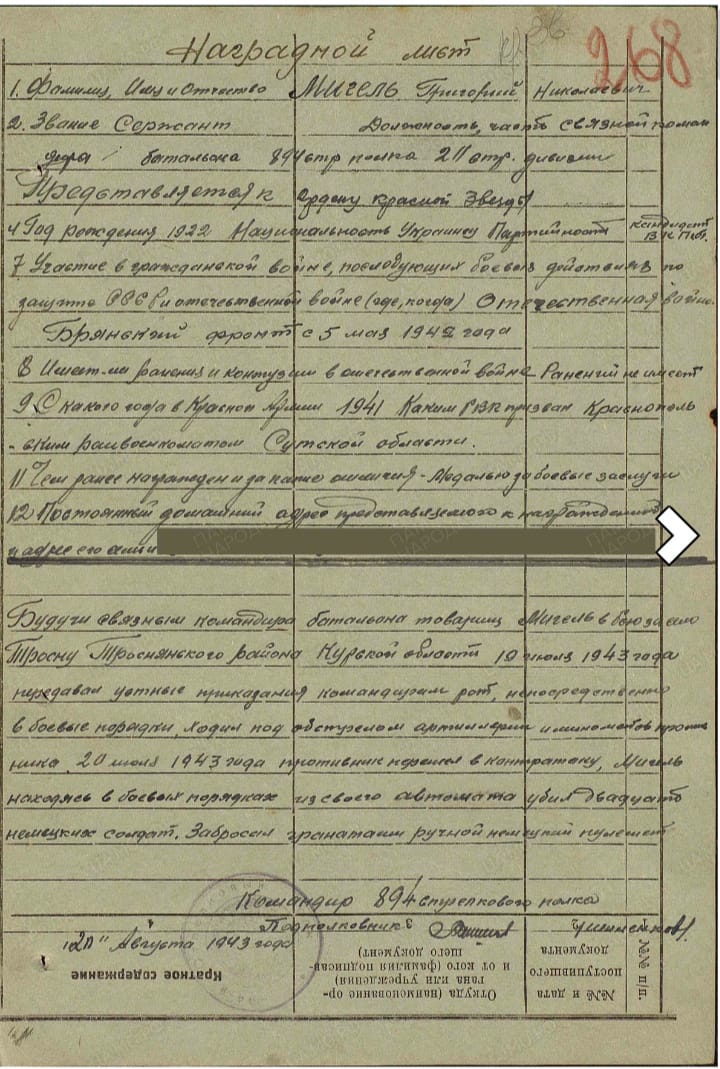 268
Наградной лист
1. Фамилия, Имя и отчество Мигель Григорий Николаевич
2. Звание Сержант Должность, часть связной коман
дира батальона 894 стр полка 211 стр. дивизии
Представляется к Ордену красной Звезды
4 Год рождения 1922 Национальность Украинец Партийность кандидат ВКПб.
7 Участие в гражданской войне, последующих боевых действиях по
защите СССР и отечественной войне (где, когда) Отечественная война.
Брянский фронт с 5 мая 1942 года
8 Имеет ли ранения и контузии в отечественной войне Ранений не имеет
9 С какого года в Красной Армии 1941 Каким РВК призван Краснополь
-ским райвоенкоматом Сумской области.
11 Чем ранее награжден и за какие отличия - Медалью за боевые заслуги
12 Постоянный домашний адрес представляемого к награждению
и адрес его
Будучи связным командира батальона товарищ Мигель в бою за село
Тросну Троснянского района Курской области 19 июля 1943 года
передавал устные приказания командирам рот, непосредственно
в боевые порядки, ходил под обстрелом артиллерии и минометов против
ника. 20 июля 1943 года противник перешел в контратаку, Мигель
находясь в боевых порядках из своего автомата убил двадцать
немецких солдат. Забросал гранатами ручной немецкий пулемет
Командир 894 стрелкового полка
Подполковник
Августа 1943 года
Краткое содержание
Откуда (наименование ор-
гана или учреждения)
и от кого (фамилия подписав-
шего документ)
№№ и дата
поступившего
документа
№№ п/п.